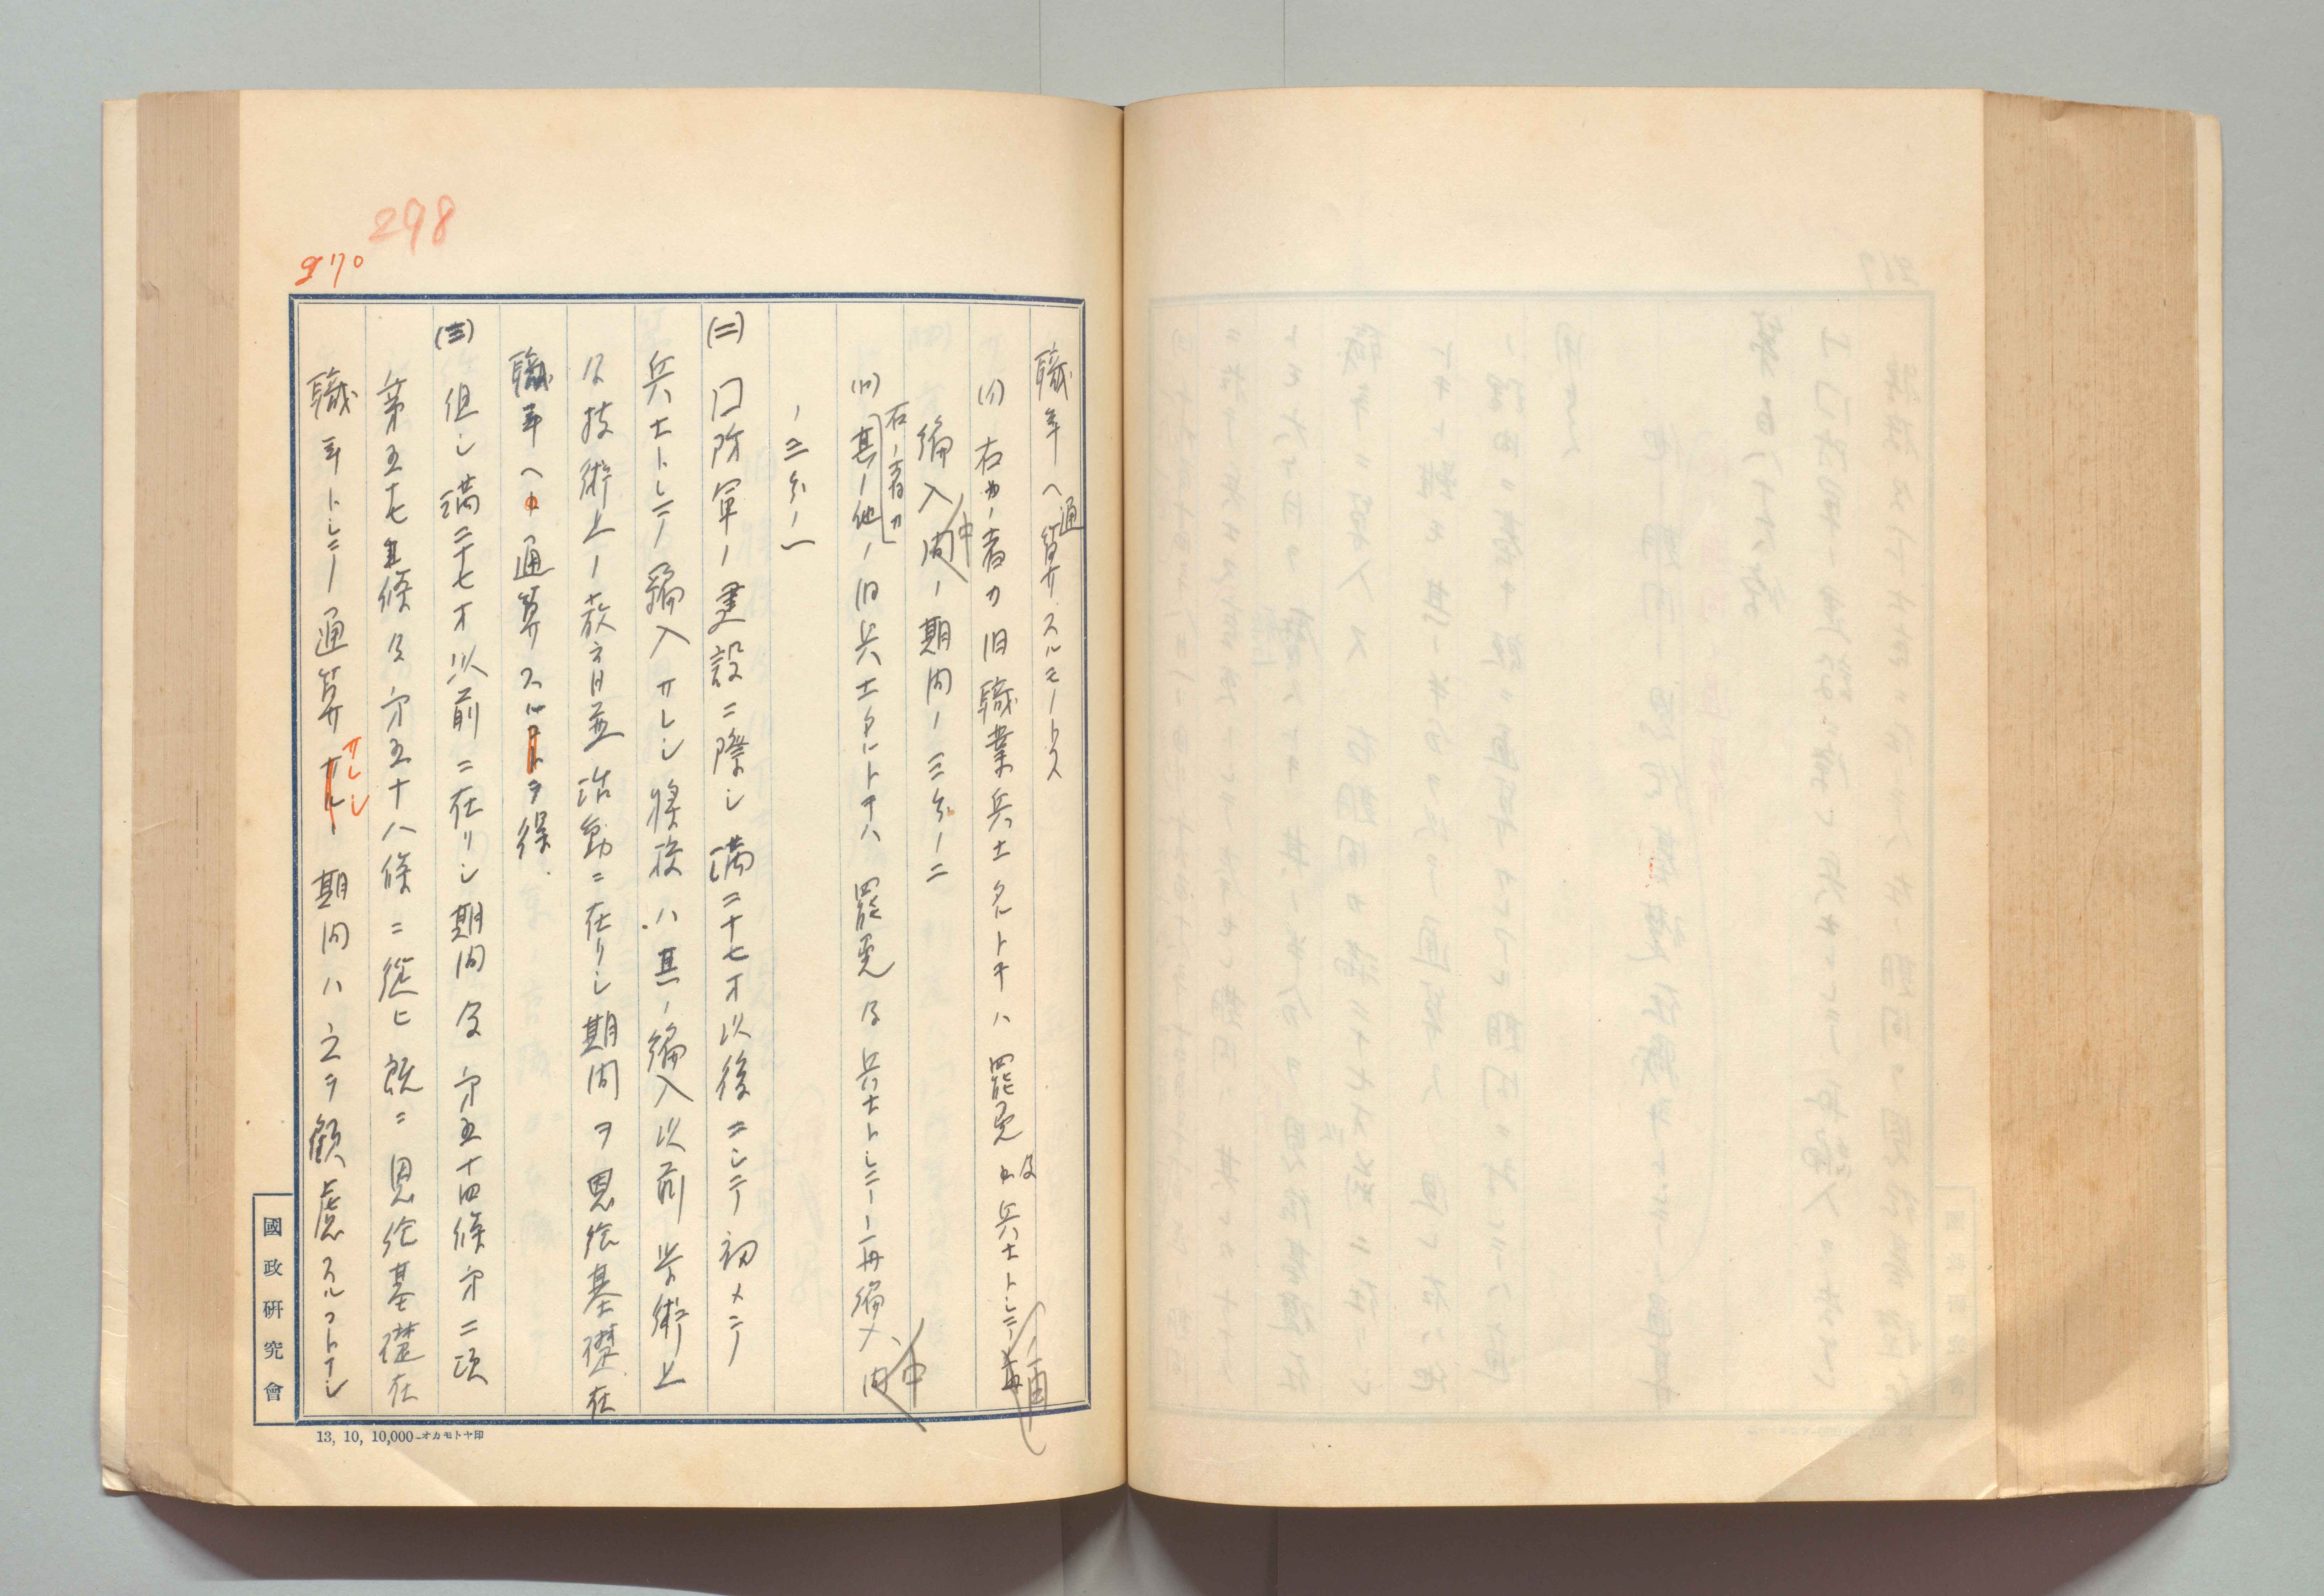 298
270
職年ヘ通算スルモノトス
(イ) 右ノ者カ旧職業兵士タルトキハ罷免及兵士トシテノ再
編入間ノ期間ノ三分ノ二
(ロ) 右ノ者カ其ノ他ノ旧兵士タルトキハ罷免及兵士トシテノ再編入間
ノ三分ノ一
(二) 口防軍ノ建設ニ際シ満二十七才以後ニシテ初メテ
兵士トシテ編入サレシ将校ハ其ノ編入以前学術上
及技術上ノ教育並活動ニ在リシ期間ヲ恩給基礎在
職年ヘ通算スルコトヲ得
(三) 但シ満二十七才以前ニ在リシ期間及第五十四條第二項
第五十七條及第五十八條ニ從ヒ既ニ恩給基礎在
職年トシテ通算サレシ期間ハ之ヲ顧慮スルコトナシ
國政研究會
13, 10, 10,000—オカモトヤ印